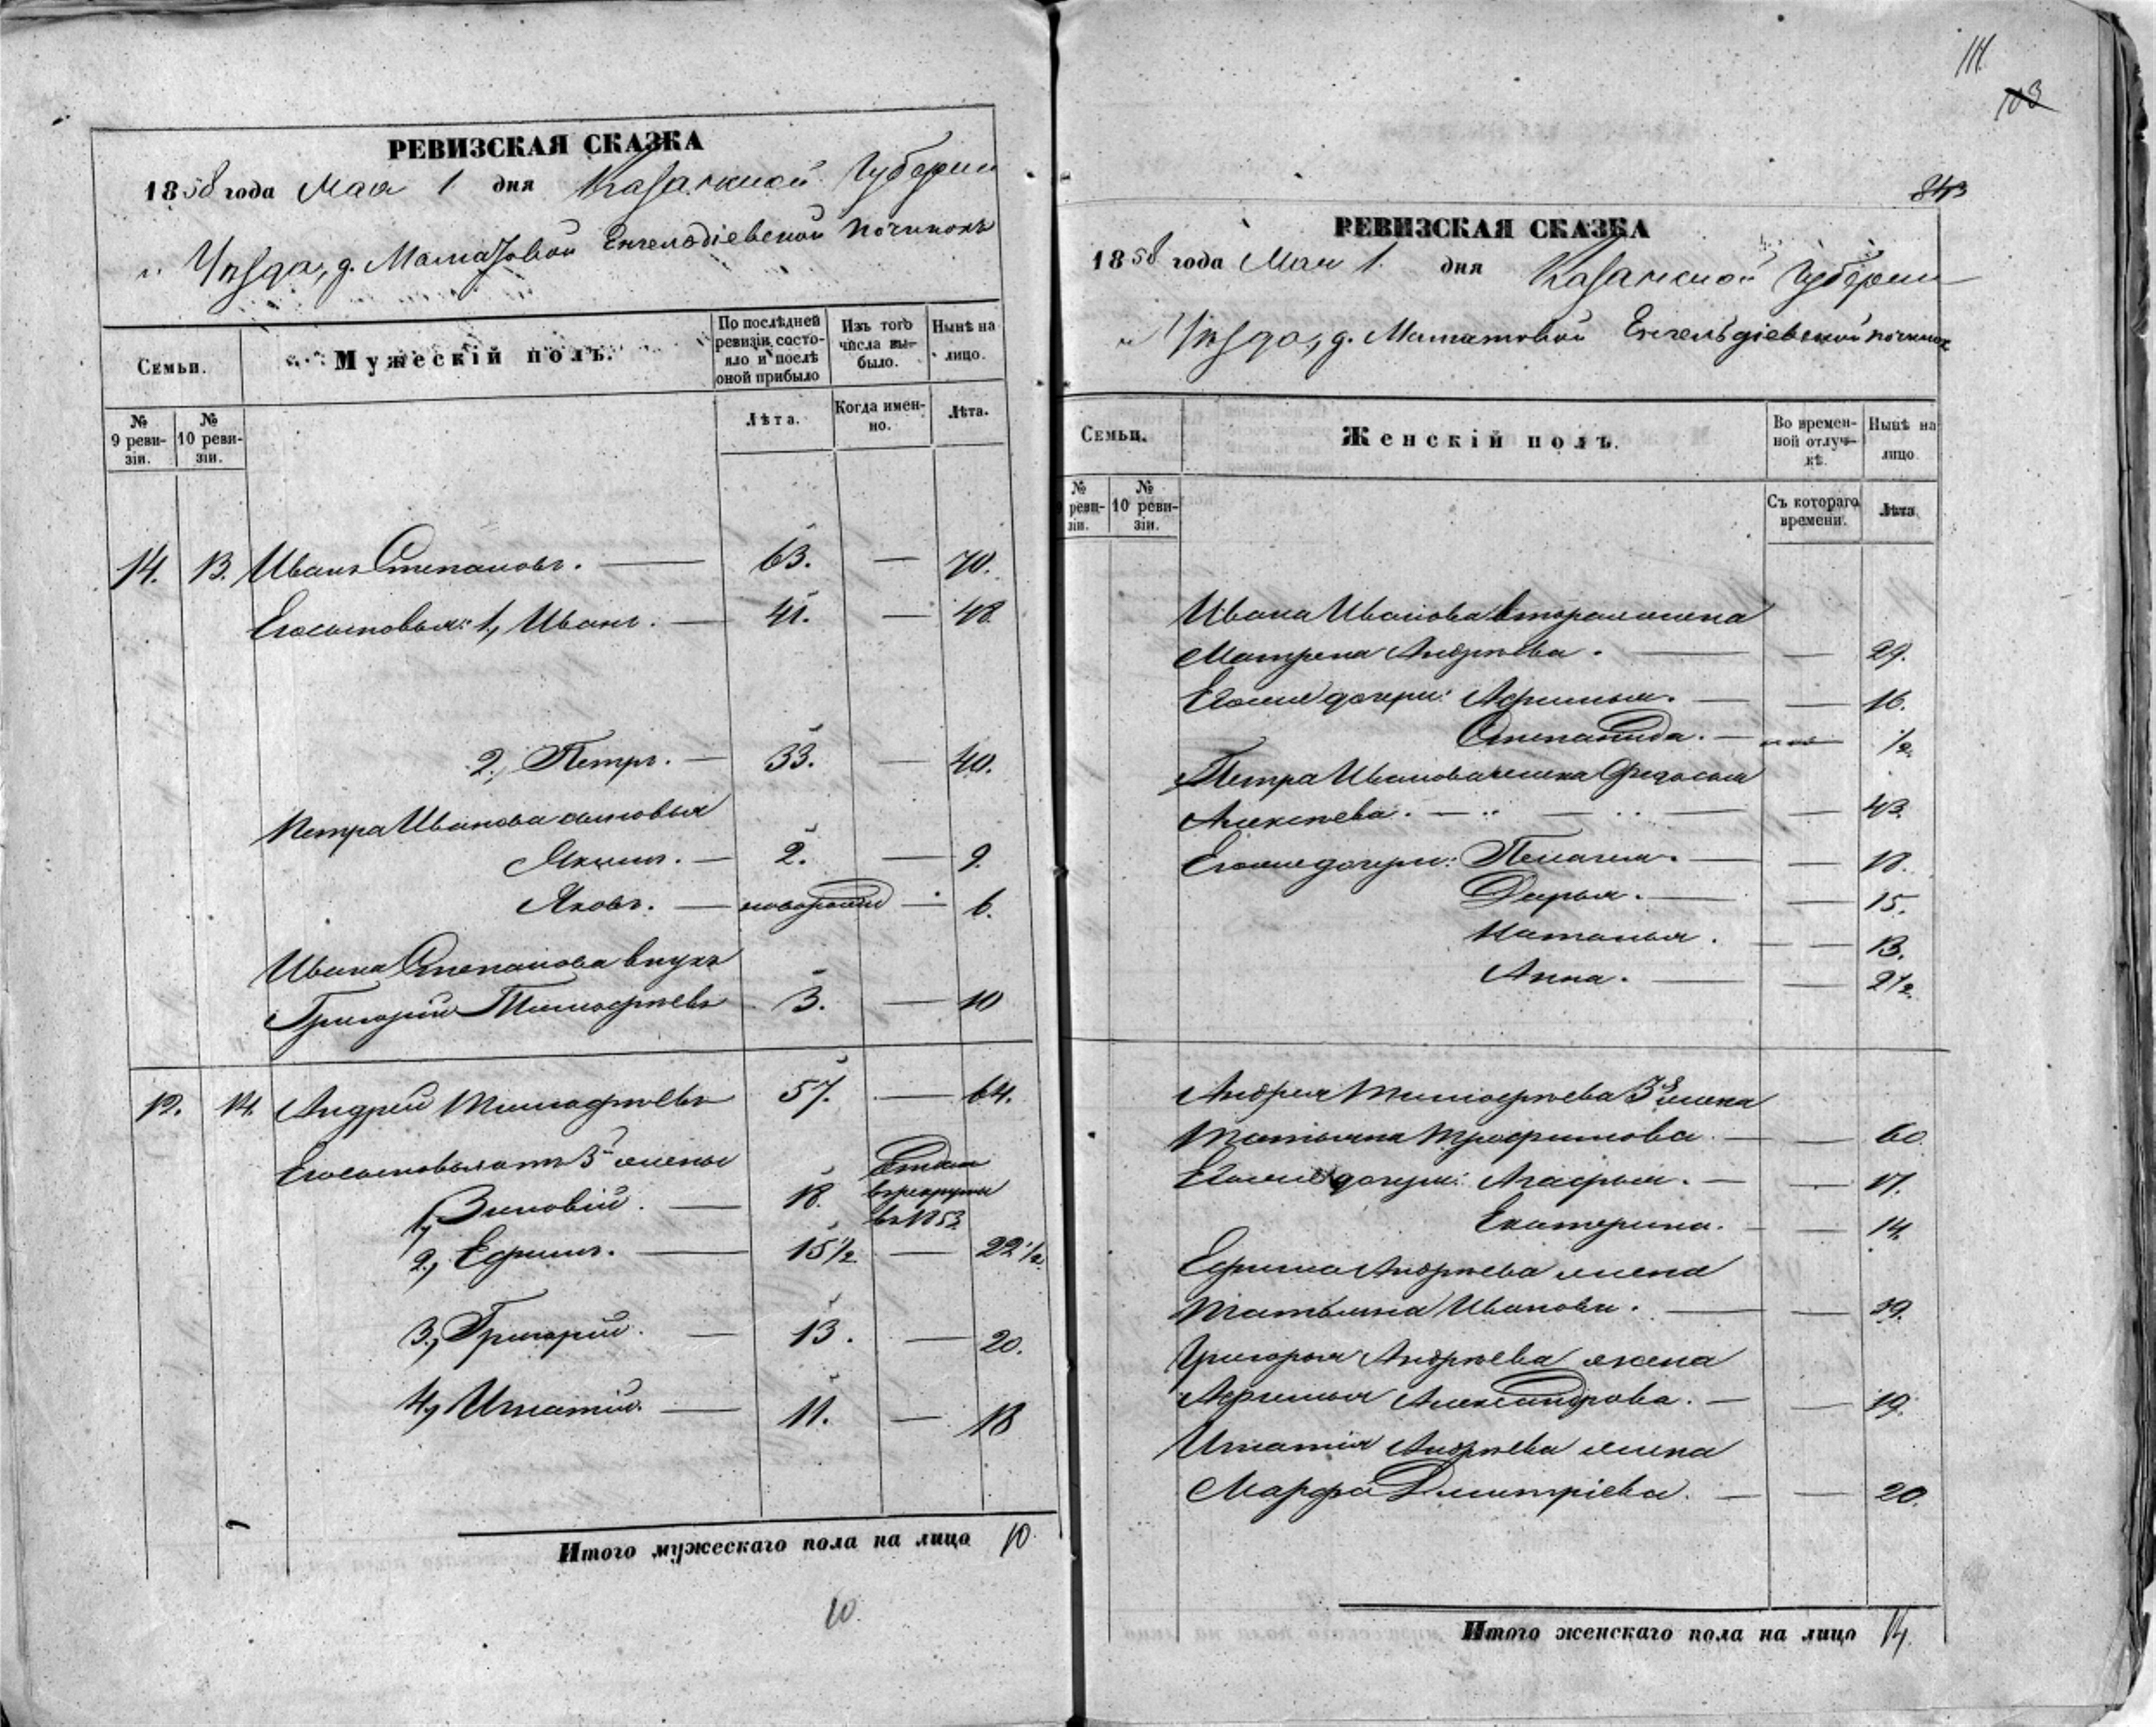 РЕВИЗСКАЯ СКАЗКА
1858 года Мая 1 дня Казанской Губернии
и Уѣзда, д. Маматовой Енгельдіевской починокъ
Семьи.
Мужескій полъ.
По послѣдней ревизіи состояло и послѣ оной прибыло
Изъ того числа выбыло.
Нынѣ на лицо.
№ 9 ревизіи.
№ 10 ревизіи.
Лѣта.
Когда именно.
Лѣта.
14. 13. Иванъ Степановъ. — 63. — 70.
Его сыновья: 1, Иванъ. — 41. — 48
2, Петръ. — 33. — 40.
Петра Иванова сыновья
Якимъ. — 2. — 9.
Яковъ. — новорожд — 6.
Ивана Степанова внукъ
Григорій Тимофѣевъ 3. — 10
12. 14. Андрей Тимофѣевъ 57. — 64.
Его сыновья отъ 3й жены
1, Зиновій. — 18. Отданъ в рекруты въ 1853
2, Ефимъ. — 15 1/2 — 22 1/2.
3, Григорій. — 13. — 20.
4, Игнатій. — 11. — 18
Итого мужескаго пола на лицо 10.
10.
111.
103
843
РЕВИЗСКАЯ СКАЗКА
1858 года Мая 1. дня Казанской Губерніи
и Уѣзда, д. Маматовой Енгельдіевской починок
Семьи.
Женскій полъ.
Во временной отлучкѣ.
Нынѣ на лицо
№ ревизіи.
№ 10 ревизіи.
Съ котораго времени.
Лѣта
Ивана Иванова вторая жена
Матрена Андрѣева. — — 29.
Его же дочери: Афимья. — — 16.
Степанида. — — 1/2.
Петра Иванова жена Федосья
Алексѣева. — — — — 43.
Его же дочери: Пелагея. — — 18.
Дарья. — — 15.
Наталья. — — 13.
Анна. — — 2 1/2.
Андрея Тимофѣева 3я жена
Татьяна Трофимова. — — 60.
Его же дочери: Агафья. — — 17.
Екатерина. — — 14.
Ефима Андрѣева жена
Татьяна Иванова. — — 29.
Григорья Андрѣева жена
Афимья Александрова. — — 19.
Игнатія Андрѣева жена
Марфа Дмитріева. — — 20.
Итого женскаго пола на лицо 14.